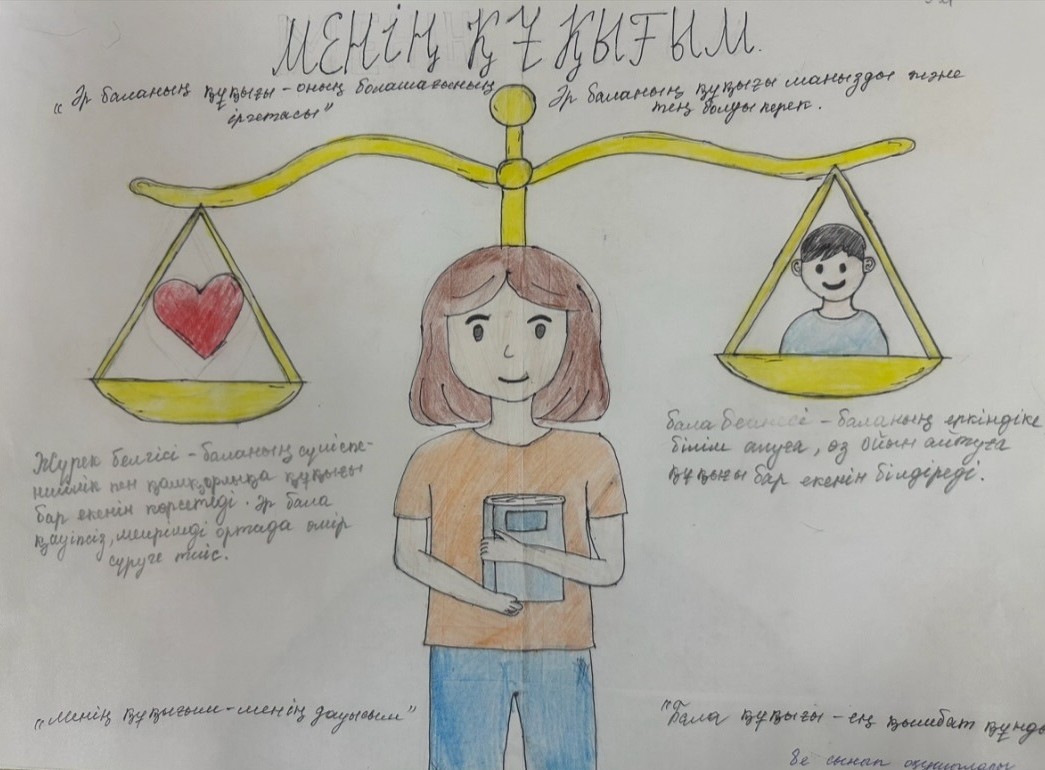 МЕНІҢ ҚҰҚЫҒЫМ.
"Әр баланың құқығы - оның болашағының
іргетасы"
Әр баланың құқығы маңызды және
тең болуы керек.
Жүрек белгісі - баланың сүйіспе-
ншілік пен қамқорлыққа құқығы
бар екенін көрсетеді. Әр бала
қауіпсіз, мейірімді ортада өмір
сүруге тиіс.
бала бейнесі - баланың еркіндікке
білім алуға, өз ойын айтуға
құқығы бар екенін білдіреді.
"Менің құқығым - менің дауысым"
"Бала құқығы - ең қымбат құнды
8е сынып оқушылары